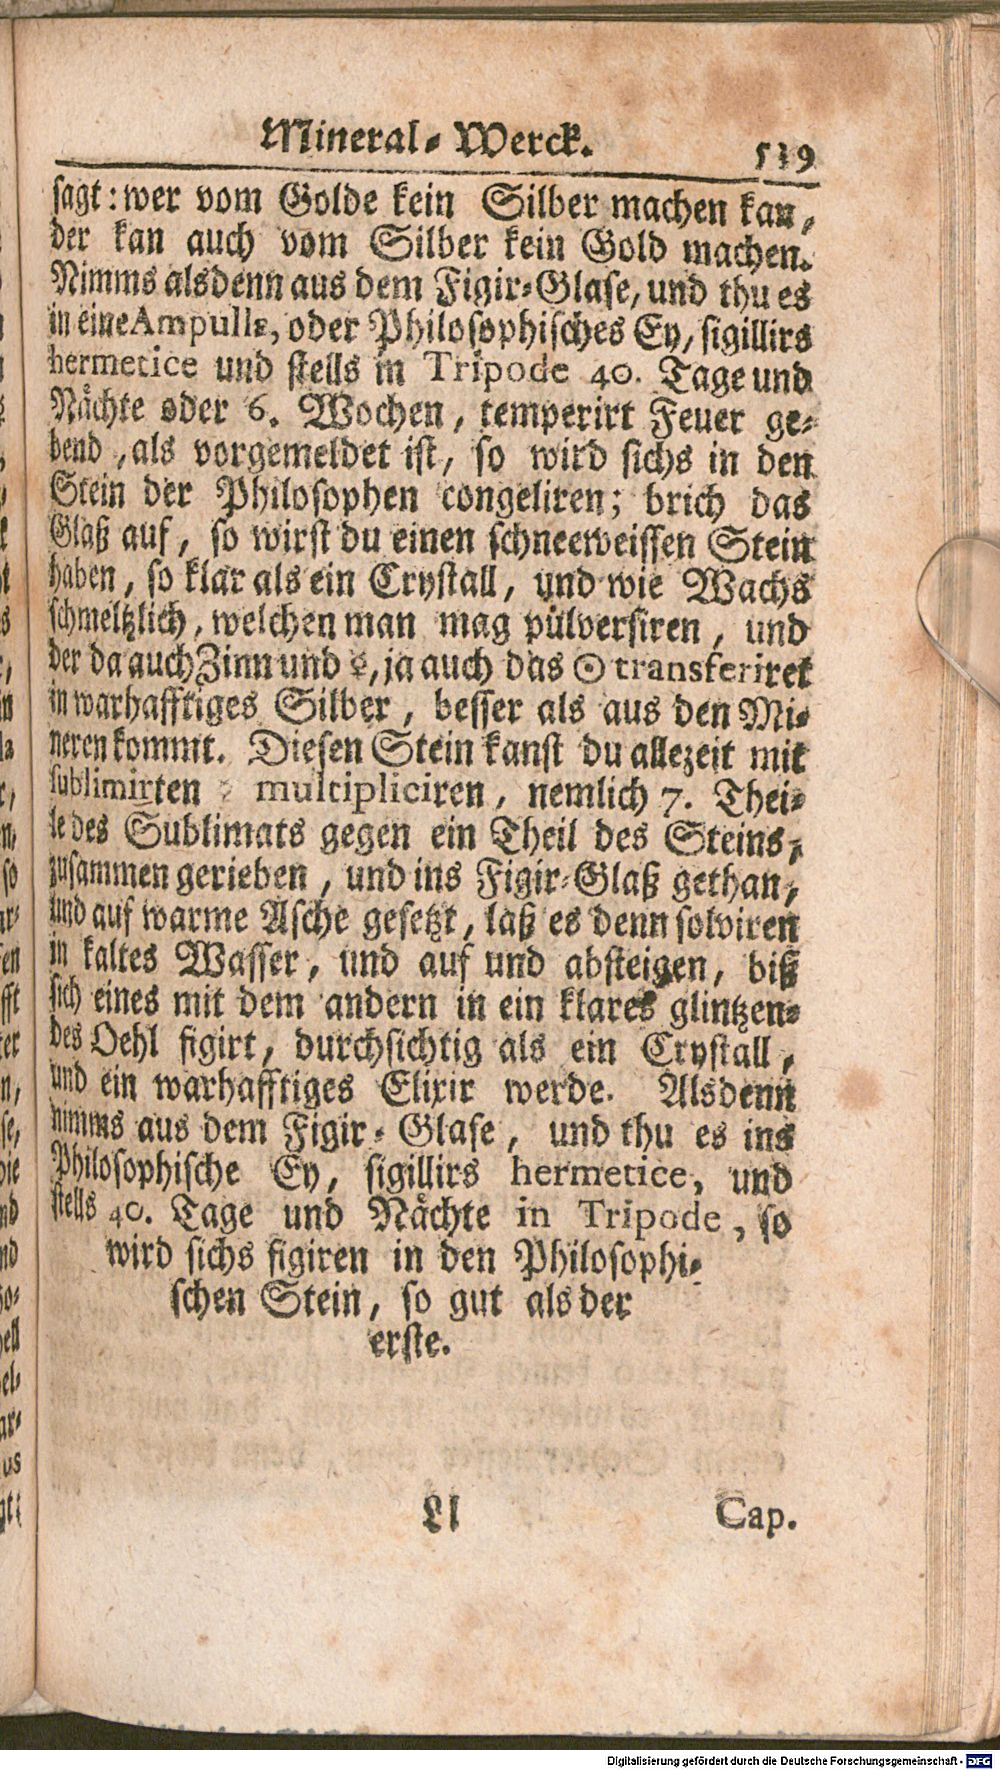 Mineral-Werck. 519
sagt: wer vom Golde kein Silber machen kan,
der kan auch vom Silber kein Gold machen.
Nimms alsdenn aus dem Figir-Glase, und thu es
in eine Ampulle, oder Philosophisches Ey, sigillirs
hermetice und stells in Tripode 40. Tage und
Nächte oder 6. Wochen, temperirt Feuer ge-
bend, als vorgemeldet ist, so wird sichs in den
Stein der Philosophen congeliren; brich das
Glaß auf, so wirst du einen schneeweissen Stein
haben, so klar als ein Crystall, und wie Wachs
schmeltzlich, welchen man mag pülversiren, und
der da auch Zinn und ☿, ja auch das ☉ transferiret
in warhafftiges Silber, besser als aus den Mi-
neren kommt. Diesen Stein kanst du allezeit mit
sublimirten multipliciren, nemlich 7. Thei-
le des Sublimats gegen ein Theil des Steins,
zusammen gerieben, und ins Figir-Glaß gethan,
und auf warme Asche gesetzt, laß es denn solviren
in kaltes Wasser, und auf und absteigen, biß
sich eines mit dem andern in ein klares glintzen-
des Oehl figirt, durchsichtig als ein Crystall,
und ein warhafftiges Elixir werde. Alsdenn
nimms aus dem Figir-Glase, und thu es ins
Philosophische Ey, sigillirs hermetice, und
stells 40. Tage und Nächte in Tripode, so
wird sichs figiren in den Philosophi-
schen Stein, so gut als der
erste.
Ll Cap.
Digitalisierung gefördert durch die Deutsche Forschungsgemeinschaft - DFG